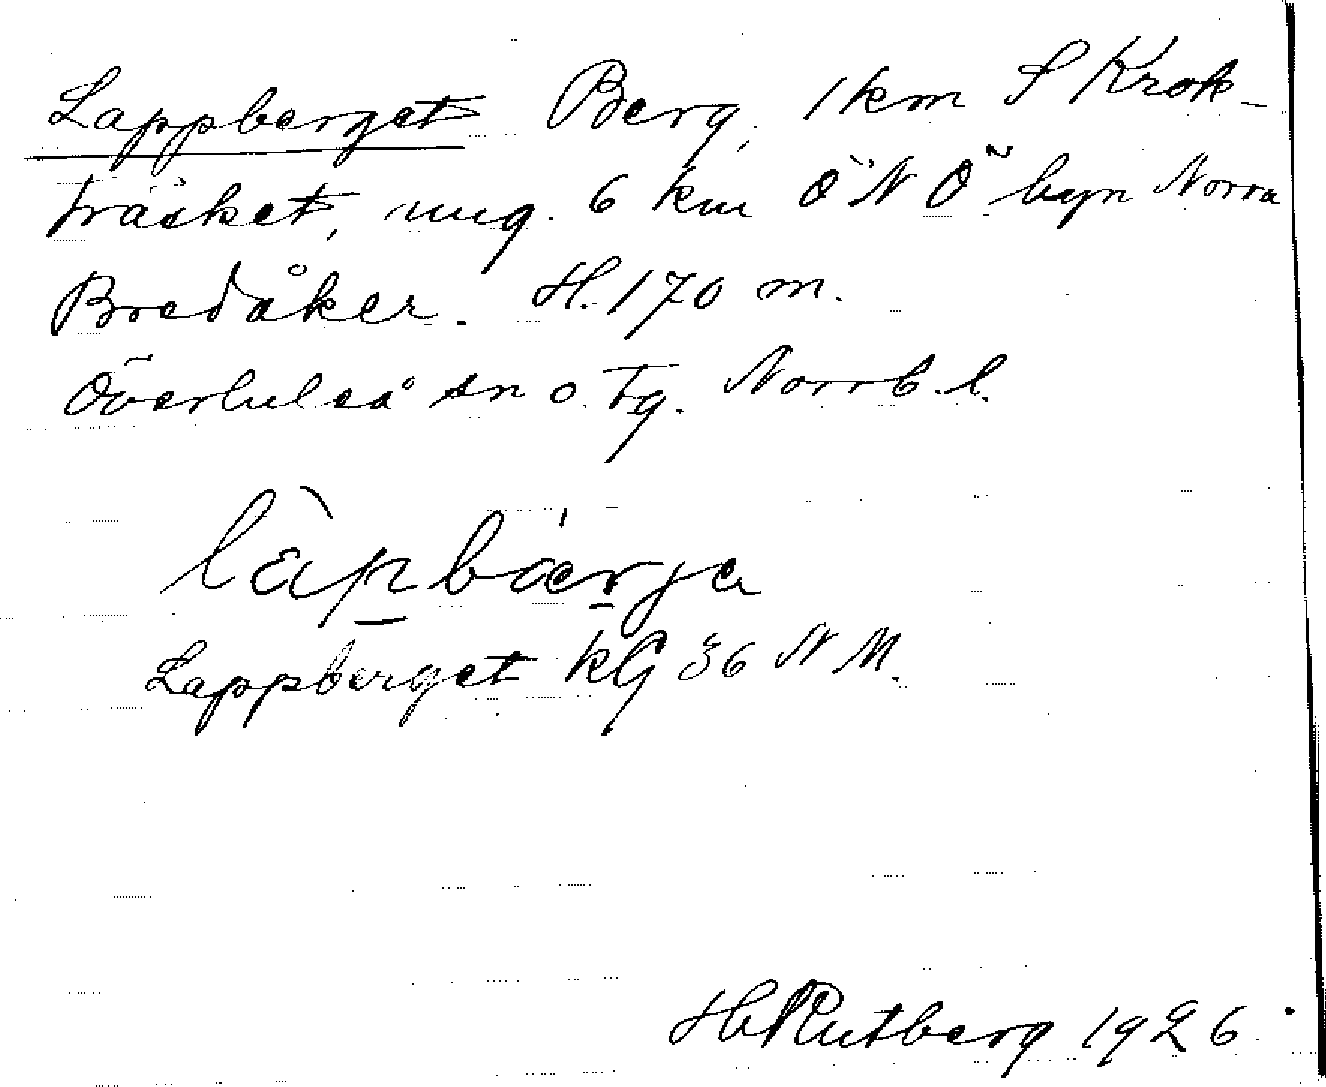 Lappberget Berg, 1 km S Krok-
träsket, ung. 6 km ÖNÖ byn Norra
Bredåker. H. 170 m.
Överluleå sn o. Tg. Norrb. l.
làpbærja
Lappberget KG 36 N M.
H Rutberg 1926.